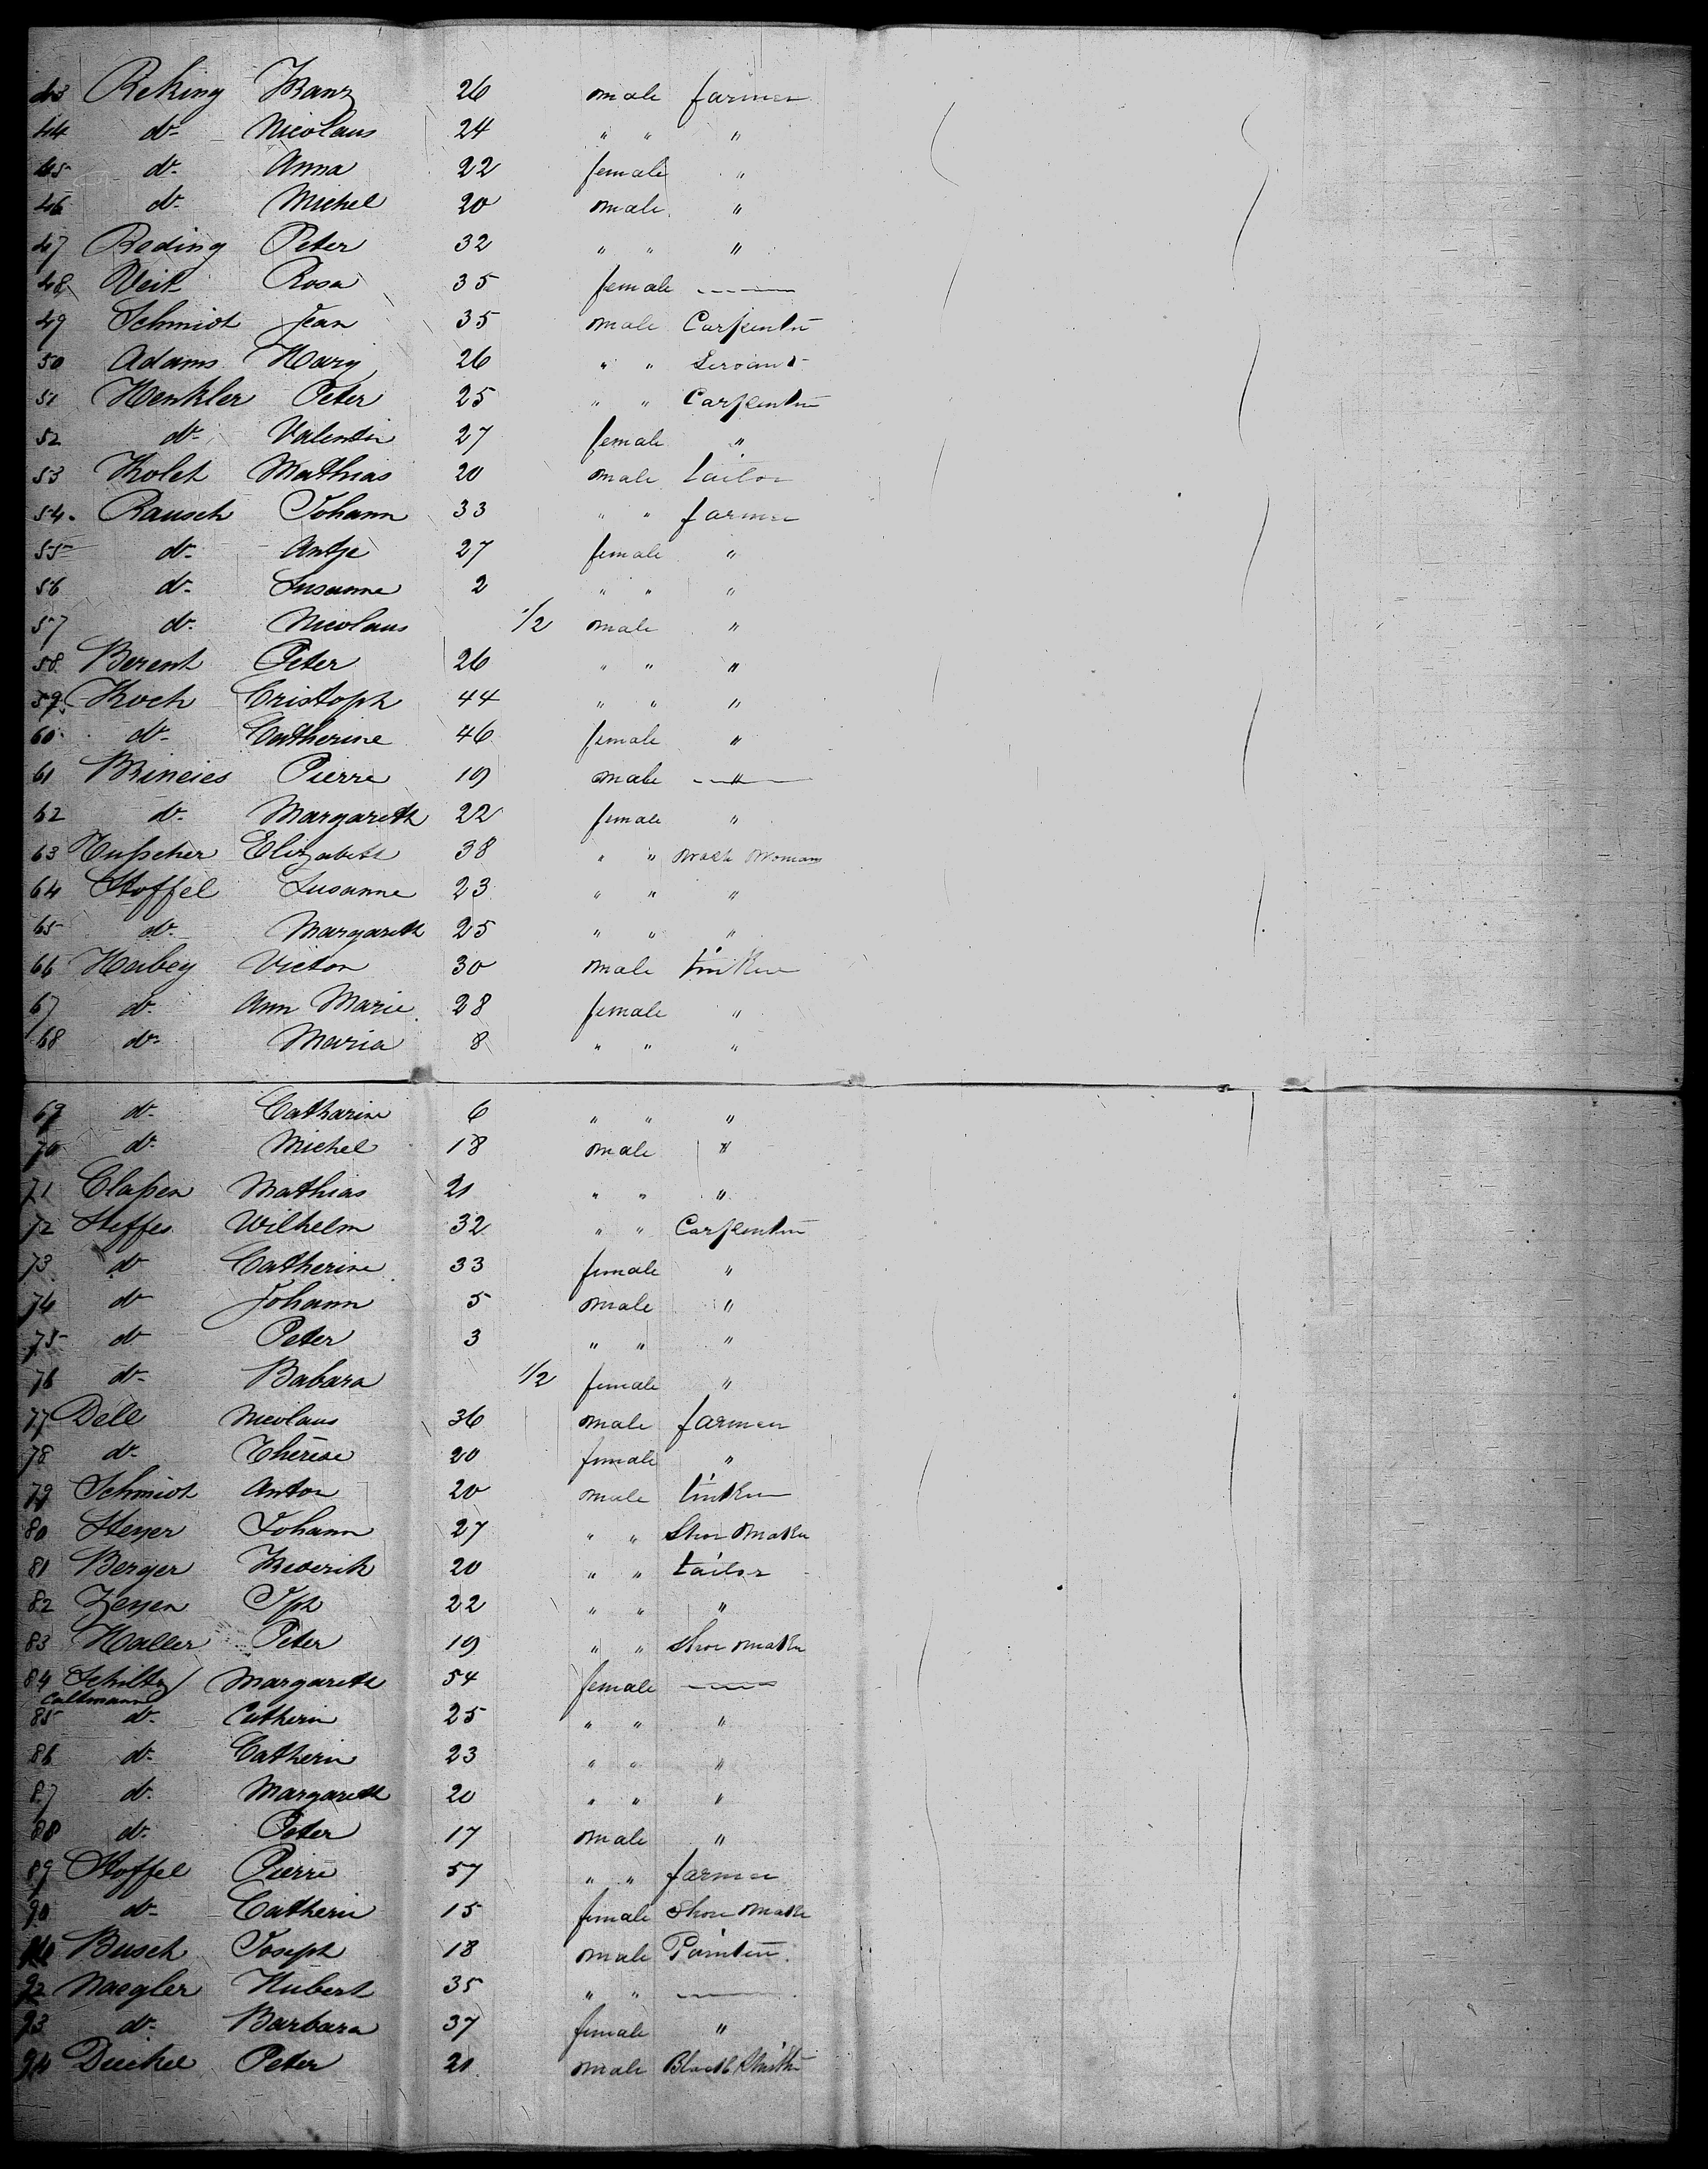 43 Reking Franz 26 male farmer
44 do Nicolaus 24 " " "
45 do Anna 22 female "
46 do Michel 20 male "
47 Reding Peter 32 " " "
48 Veit Rosa 35 female —
49 Schmidt Jean 35 male Carpenter
50 Adams Harry 26 " " Servant
51 Henkler Peter 25 " " Carpenter
52 do Valentin 27 female "
53 Kolet Mathias 20 male tailor
54. Rausch Johann 33 " " farmer
55 do Antje 27 female "
56 do Susanne 2 " " "
57 do Nicolaus 1/2 male "
58 Berent Peter 26 " " "
59 Koch Cristoph 44 " " "
60 do Catherine 46 female "
61 Brincies Pierre 19 male — " —
62 do Margareth 22 female "
63 Elizabeth 38 " " wash woman
64 Stoffel Susanne 23 " " "
65 do Margareth 25 " " "
66 Habey Victor 30 male tinker
67 do Ann Marie 28 female "
68 do Maria 8 " " "
69 do Catharine 6 " " "
70 do Michel 18 male "
71 Claßen Mathias 21 " " "
72 Steffes Wilhelm 32 " " Carpenter
73 do Catherine 33 female "
74 do Johann 5 male "
75 do Peter 3 " " "
76 do Babara 1/2 female "
77 Dell Nicolaus 36 male farmer
78 do Therese 20 female "
79 Schmidt Anton 20 male tinker
80 Steyer Johann 27 " " Shoe maker
81 Berger Frederik 20 " " tailor
82 Zeyen Jph 22 " " "
83 Haller Peter 19 " " Shoe maker
84 Schiltz Margareth 54 female —
Caltmann
85 do Catherin 25 " " "
86 do Catherin 23 " " "
87 do Margareth 20 " " "
88 do Peter 17 male "
89 Stoffel Pierre 57 " " farmer
90 do Catherin 15 female Shoe make
91 Busch Joseph 18 male Painter
92 Naegler Hubert 35 " " —
93 do Barbara 37 female "
94 Peter 21 male Black Smith